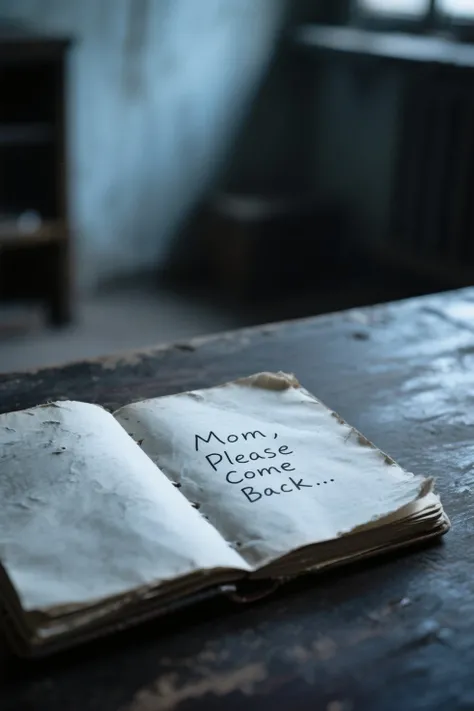 Mom,
Please
Come
Back...